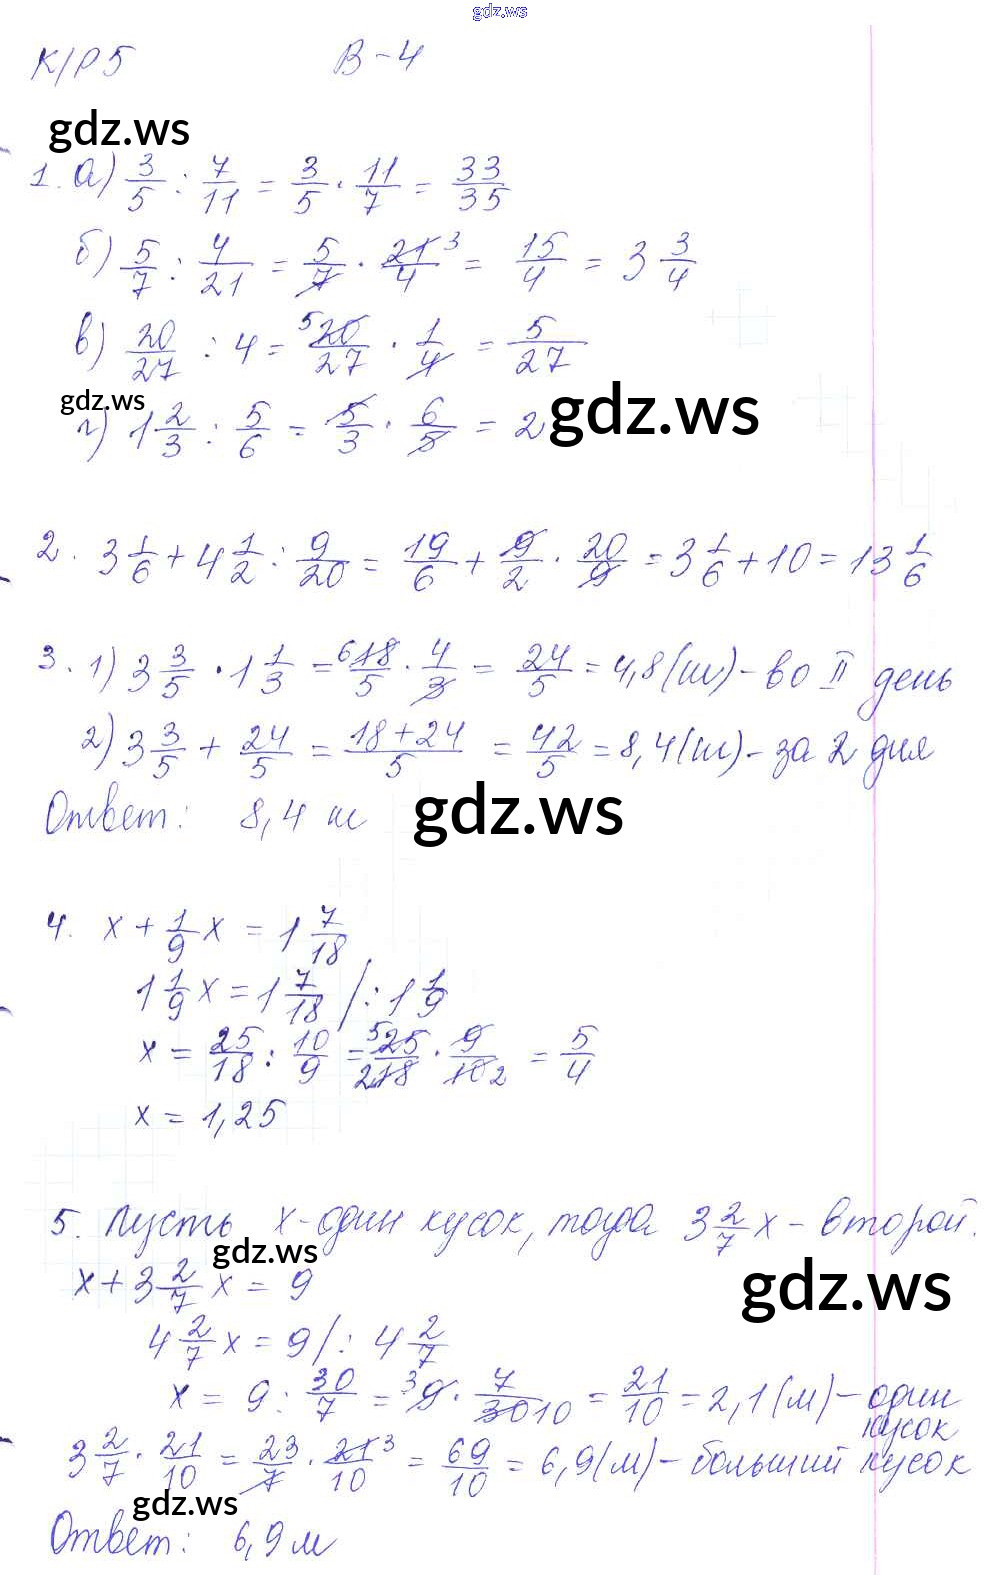 gdz.ws
К/Р 5 В-4
gdz.ws
1. а) 3/5 : 7/11 = 3/5 · 11/7 = 33/35
б) 5/7 : 4/21 = 5/7 · 21/4 3 = 15/4 = 3 3/4
в) 20/27 : 4 = 5 20/27 · 1/4 = 5/27
gdz.ws
г) 1 2/3 : 5/6 = 5/3 · 6/5 = 2
gdz.ws
2. 3 1/6 + 4 1/2 : 9/20 = 19/6 + 9/2 · 20/9 = 3 1/6 + 10 = 13 1/6
3. 1) 3 3/5 · 1 1/3 = 6 18/5 · 4/3 = 24/5 = 4,8 (ш) - во II день
2) 3 3/5 + 24/5 = 18+24/5 = 42/5 = 8,4 (ш) - за 2 дня
Ответ: 8,4 ш
gdz.ws
4. x + 1/9 x = 1 7/18
1 1/9 x = 1 7/18 / : 1 1/9
x = 25/18 : 10/9 = 5 25/2 18 · 9/10 2 = 5/4
x = 1,25
5. Пусть x - один кусок, тогда 3 2/7 x - второй.
gdz.ws
x + 3 2/7 x = 9
gdz.ws
4 2/7 x = 9 / : 4 2/7
x = 9 : 30/7 = 3 9 · 7/30 10 = 21/10 = 2,1 (м) - один
кусок
3 2/7 · 21/10 = 23/7 · 21/10 3 = 69/10 = 6,9 (м) - больший кусок
gdz.ws
Ответ: 6,9 м